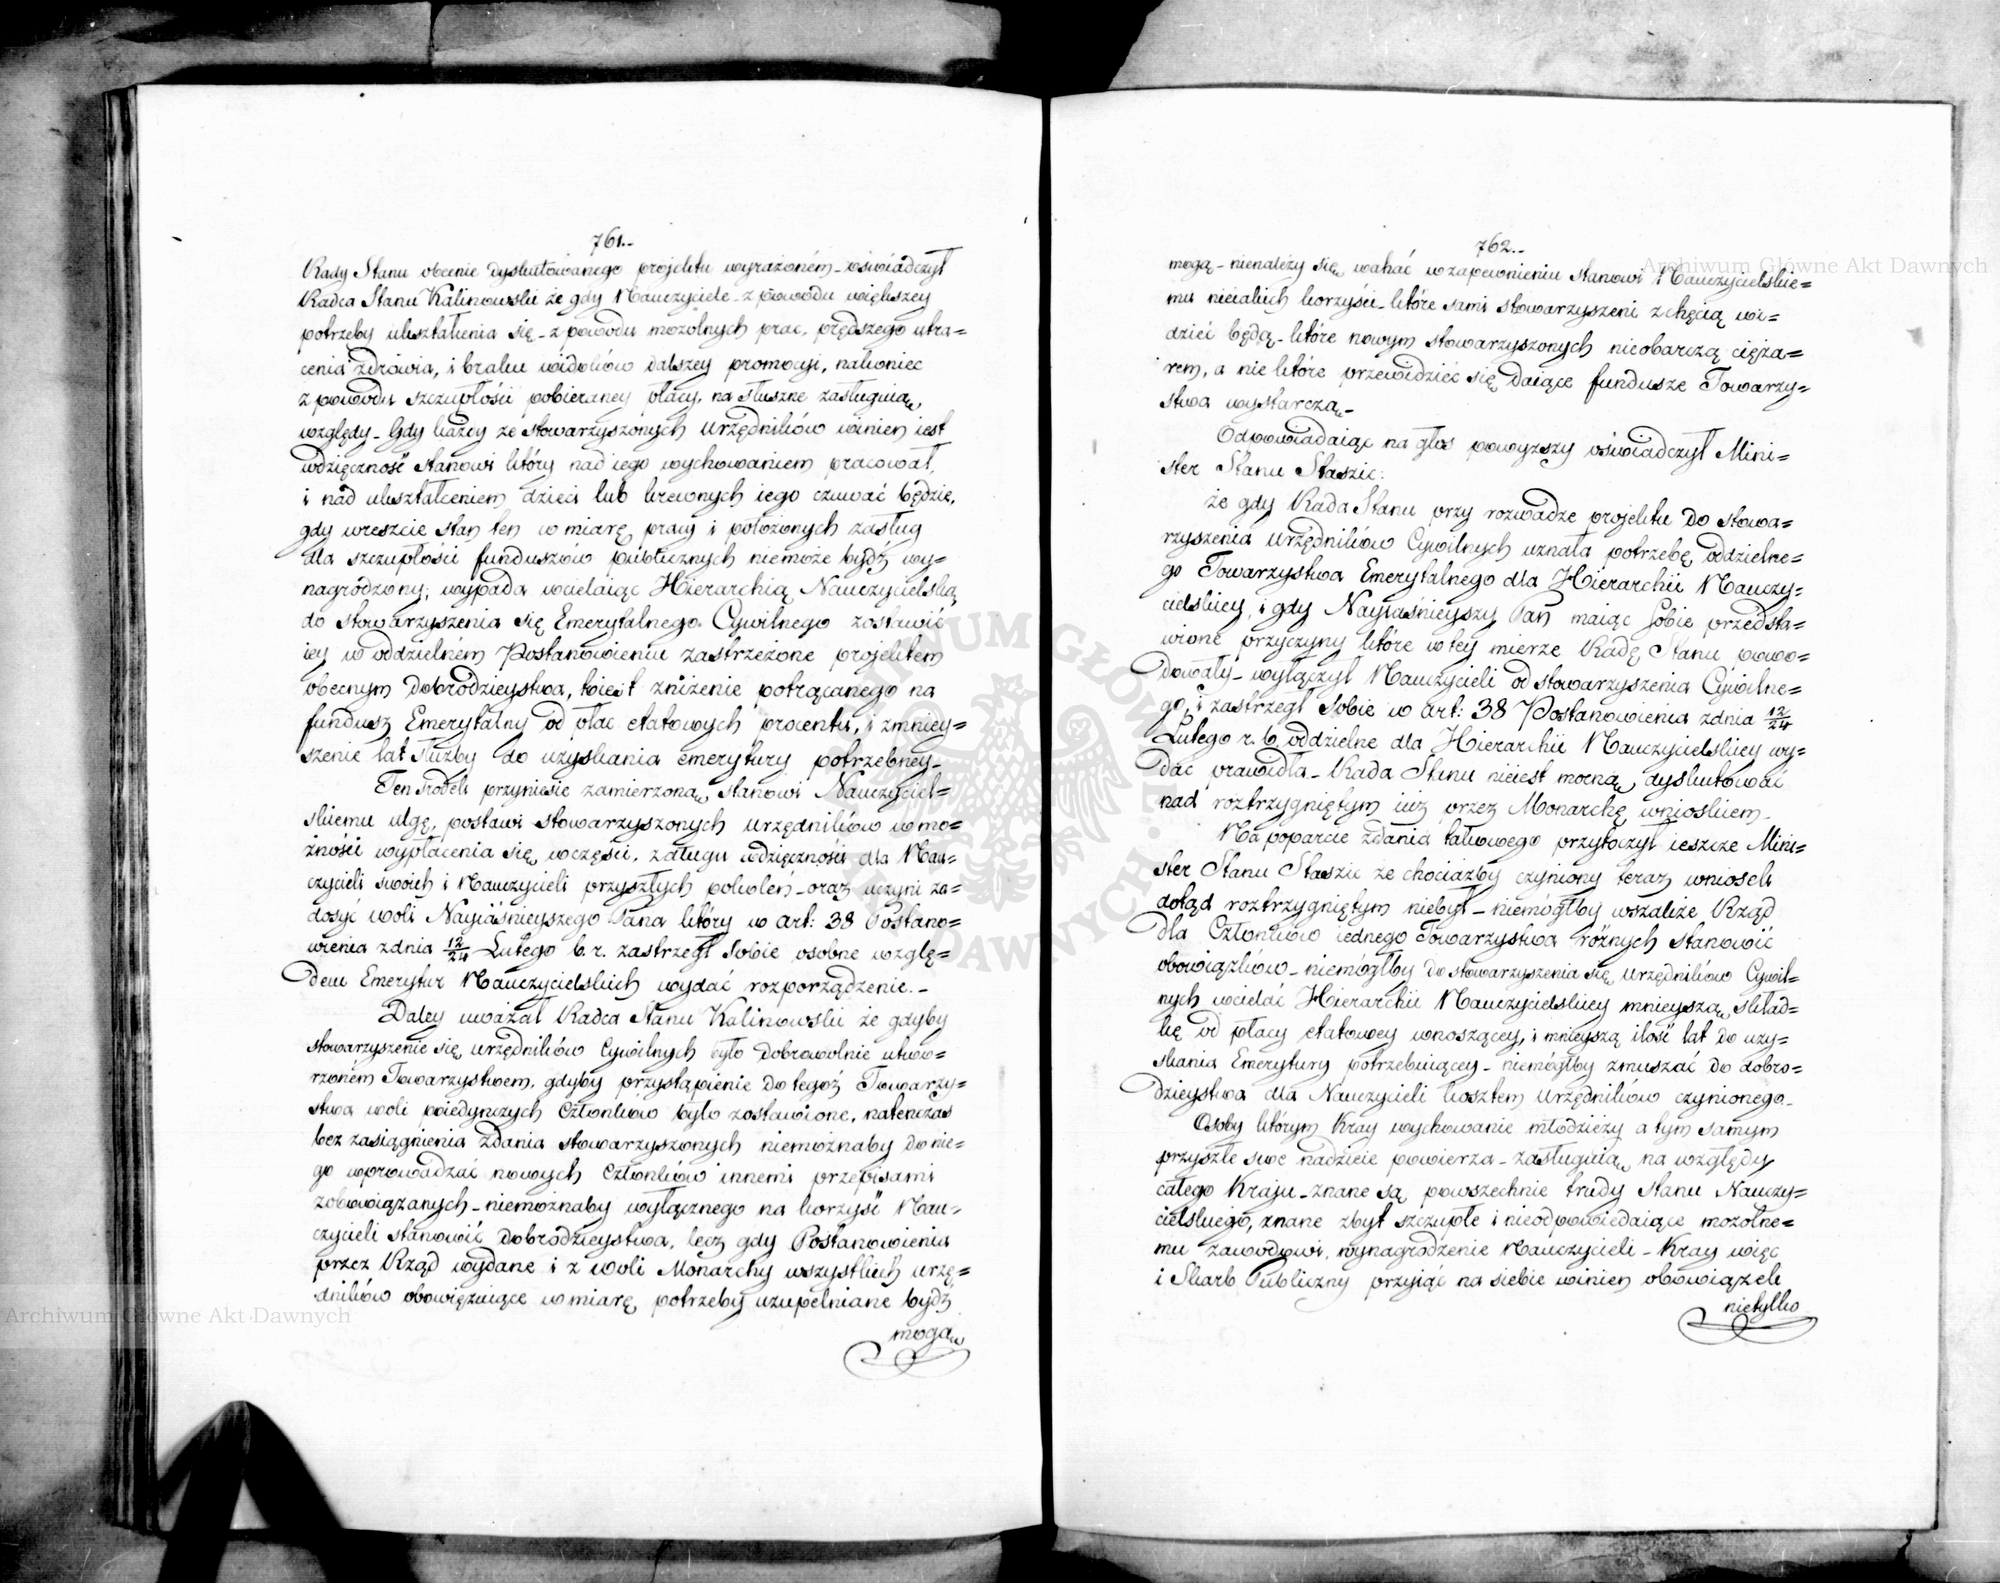 761.
Rady Stanu obecnie dyskutowanego projektu wyrażoném oświadczył
Radca Stanu Kalinowski że gdy Nauczyciele z powodu większey
potrzeby ukształcenia się z powodu mozolnych prac, prędszego utra=
cenia zdrowia, i braku widoków dalszey promocyi, nakoniec
z powodu szczupłości pobieraney płacy, na słuszne zasługuią
względy. Gdy każcy ze stowarzyszonych Urzędników winien iest
wdzięczność stanowi który nad iego wychowaniem pracował,
i nad ukształceniem dzieci lub krewnych iego czuwać będzie,
gdy wreszcie stan ten w miarę pracy i położonych zasług
dla szczupłości funduszów publicznych niemoże bydź wy=
nagrodzony; wypada wcielaiąc Hierarchią Nauczycielską
do stowarzyszenia się Emerytalnego Cywilnego zostawić
iey w oddzielném Postanowieniu zastrzeżone projektem
obecnym dobrodzieystwa, to iest zniżenie potrącanego na
fundusz Emerytalny od płac etatowych procentu, i zmniey=
szenie lat służby do uzyskania emerytury potrzebney.
Ten środek przyniesie zamierzoną stanowi Nauczyciel=
skiemu ulgę, postawi stowarzyszonych urzędników w mo=
żności wypłacenia się w części, z długu wdzięczności dla Nau=
czycieli swoich i Nauczycieli przyszłych pokoleń oraz uczyni za=
dosyć woli Nayiaśnieyszego Pana który w art: 38 Postano=
wienia z dnia 12/24 Lutego b. r. zastrzegł sobie osobne wzglę=
dem Emerytur Nauczycielskich wydać rozporządzenie.
Daley uważał Radca Stanu Kalinowski że gdyby
stowarzyszenie się urzędników Cywilnych było dobrowolnie utwo=
rzoném Towarzystwem, gdyby przystąpienie do tegoż Towarzy=
stwa woli poiedynczych Członków było zostawione, natenczas
bez zasiągnienia zdania stowarzyszonych niemożnaby do nie=
go wprowadzać nowych Członków innemi przepisami
zobowiązanych niemożnaby wyłącznego na korzyść Nau=
czycieli stanowić dobrodzieystwa, lecz gdy Postanowienia
przez Rząd wydane i z woli Monarchy wszystkich urzę=
dników obowięzuiące w miarę potrzeby uzupełniane bydź
mogą
762.
mogą nienależy się wahać w zapewnieniu stanowi Nauczycielskie=
mu nieiakich korzyści które sami stowarzyszeni z chęcią wi=
dzieć będą które nowym stowarzyszonych nieobarczą cięża=
rem, a nie które przewidzieć się daiące fundusze Towarzy=
stwa wystarczą
Odpowiadaiąc na głos powyższy oświadczył Mini=
ster Stanu Staszic:
że gdy Rada Stanu przy rozwadze projektu do stowa=
rzyszenia urzędników Cywilnych uznała potrzebę oddzielne=
go Towarzystwa Emerytalnego dla Hierarchii Nauczy=
cielskiey, i gdy Nayiaśnieyszy Pan maiąc sobie przedsta=
wione przyczyny które w tey mierze Radę Stanu powo=
dowały wyłączył Nauczycieli od stowarzyszenia Cywilne=
go, i zastrzegł sobie w art: 38 Postanowienia z dnia 12/24
Lutego r. b. oddzielne dla Hierarchii Nauczycielskiey wy=
dać prawidła Rada Stanu nieiest mocną dyskutować
nad roztrzygniętym iuż przez Monarchę wnioskiem
Na poparcie zdania takowego przytoczył ieszcze Mini=
ster Stanu Staszic że chociażby czyniony teraz wniosek
dotąd roztrzygniętym niebył niemógłby wszakże Rząd
dla Członków iednego Towarzystwa różnych stanowić
obowiązków niemógłby do stowarzyszenia się urzędników Cywil=
nych wcielać Hierarchii Nauczycielskiey mnieyszą skład=
kę od płacy etatowey wnoszącey, i mnieyszą ilość lat do uzy=
skania Emerytury potrzebuiącey niemógłby zmuszać do dobro=
dzieystwa dla Nauczycieli kosztem urzędników czynionego
Osoby którym Kray wychowanie młodzieży a tym samym
przyszłe swe nadzieie powierza zasługuią na względy
całego Kraju znane są powszechnie trudy stanu Nauczy=
cielskiego, znane zbyt szczupłe i nieodpowiedaiące mozolne=
mu zawodowi, wynagrodzenie Nauczycieli Kray więc
i Skarb Publiczny przyiąć na siebie winien obowiązek
nietylko
Archiwum Główne Akt Dawnych
Archiwum Główne Akt Dawnych
ARCHIWUM GŁÓWNE AKT DAWNYCH